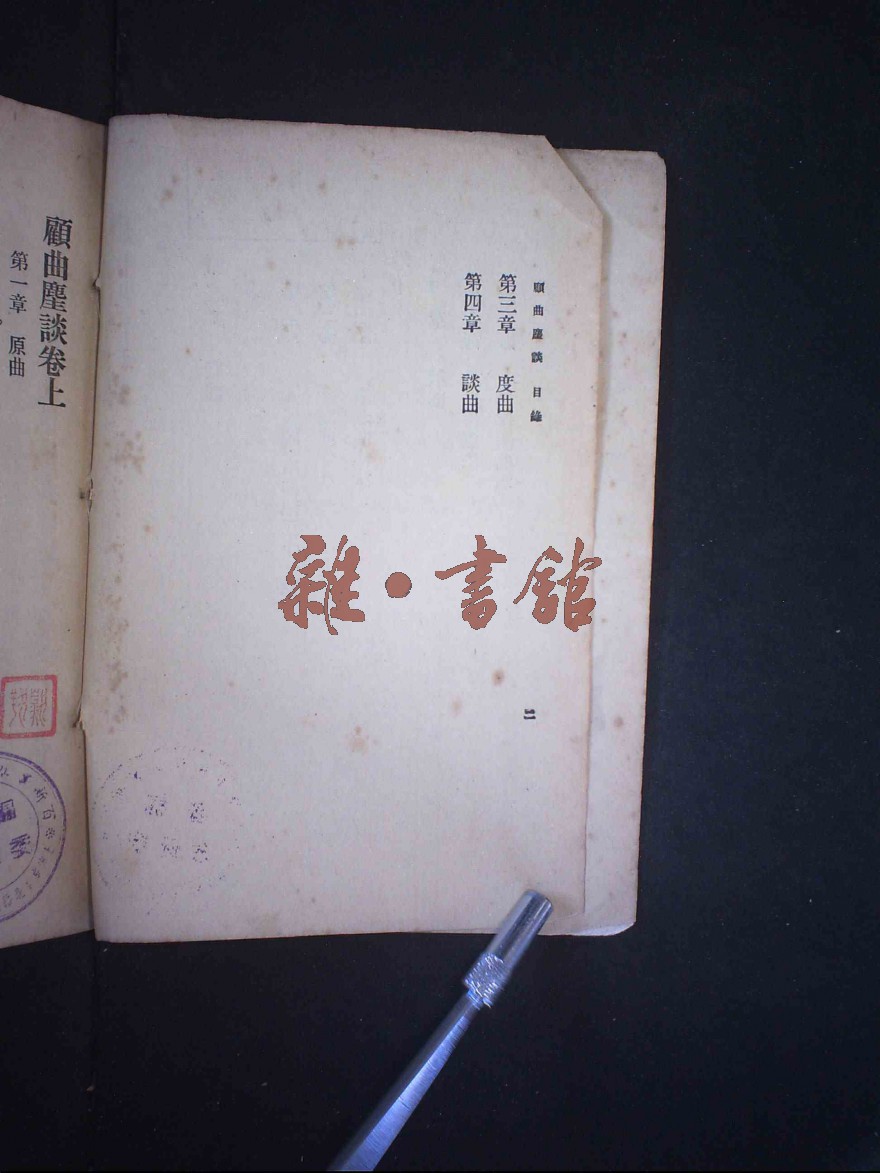 顧曲麈談 目錄
第三章 度曲
第四章 談曲
二
雜·書館
顧曲麈談卷上
第一章 原曲